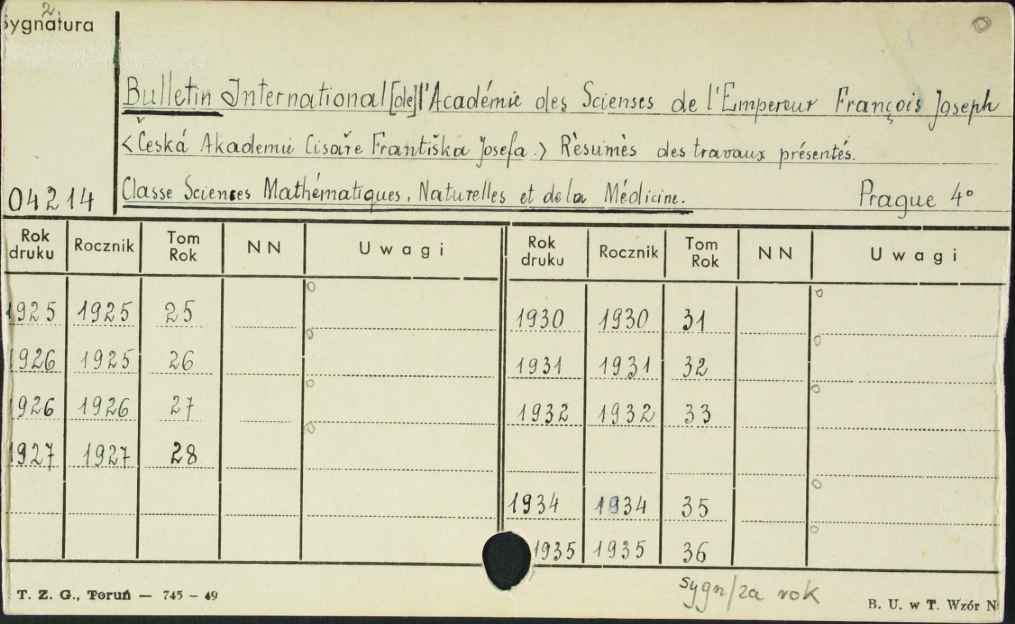 2
Sygnatura
Bulletin International [de] l'Académie des Scienses de l'Empereur François Joseph
<Česká Akademie Cisaře Františka Josefa.> Rèsumès des travaux présentés.
04214 Classe Sciences Mathématiques, Naturelles et de la Médicine. Prague 4°
Rok druku Rocznik Tom Rok NN Uwagi Rok druku Rocznik Tom Rok NN Uwagi
1925 1925 25 1930 1930 31
1926 1925 26 1931 1931 32
1926 1926 27 1932 1932 33
1927 1927 28
1934 1934 35
1935 1935 36
sygn/za rok
T. Z. G., Toruń — 745 — 49 B. U. w T. Wzór N